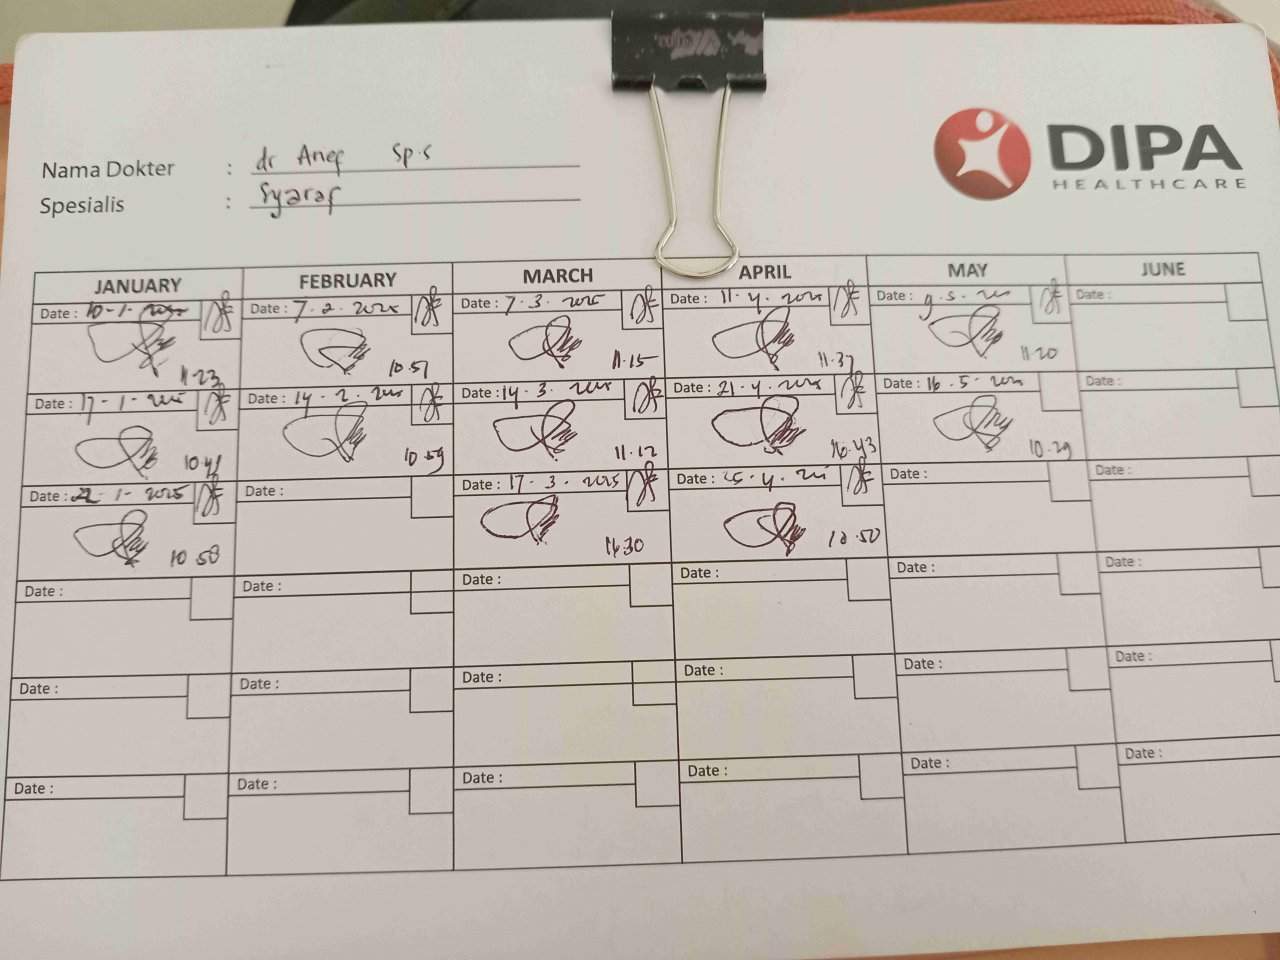 Nama Dokter : dr Anef Sp.S
Spesialis : Syaraf
DIPA
HEALTHCARE
JANUARY FEBRUARY MARCH APRIL MAY JUNE
Date : 10-1-2025 Date : 7.2.2025 Date : 7.3.2025 Date : 11.4.2025 Date : 9.5. Date :
11.23 10.51 11.15 11.37 11.20
Date : 17-1- Date : 14.2. Date : 14.3. Date : 21.4.2025 Date : 16.5. Date :
10.41 10.59 11.12 16.43 10.29
Date : 22-1-2025 Date : Date : 17.3.2025 Date : 25.4. Date : Date :
10.58 11.30 10.50
Date : Date : Date : Date : Date : Date :
Date : Date : Date : Date : Date : Date :
Date : Date : Date : Date : Date : Date :